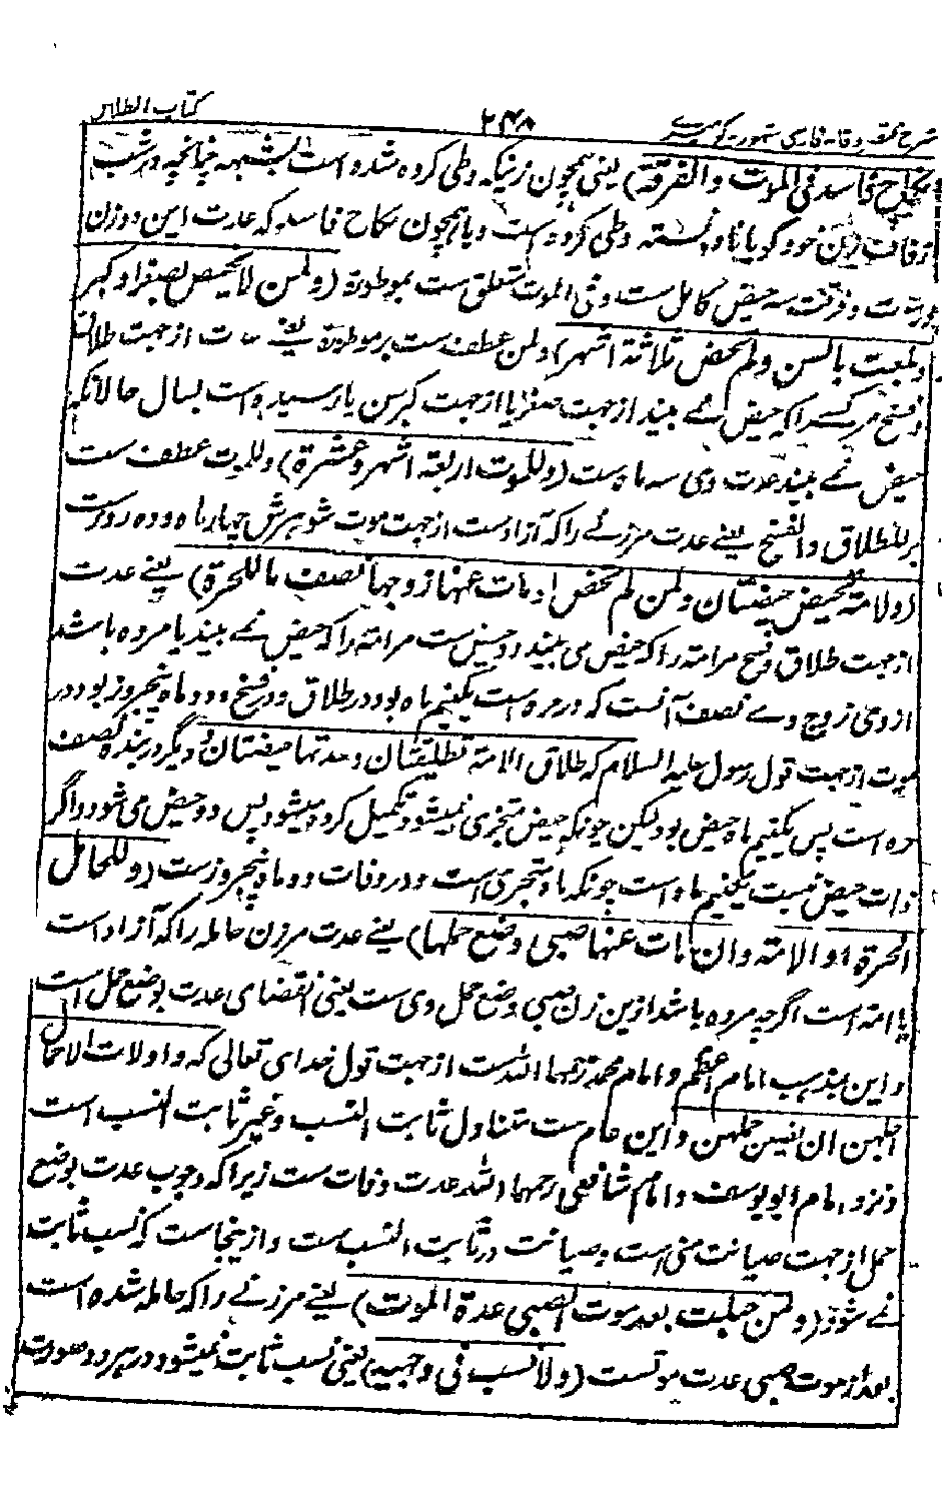 شرح مختصر وقایه فارسی مشهور به کویر ۲۴۸ کتاب الطلاق
نکاح فاسد فی الموت والفرقة) یعنی همچون زنیکه وطی کرده شده است بالشبهه چنانچه در شب
زفاف زن خود گویا نا دانسته وطی کرده است و یا همچون نکاح فاسد که عدت این دو زن
در موت و فرقت سه حیض کامل ست و فی الموت متعلق ست بموطوءة (ولمن لا تحیض لصغر او کبر
وبلغت بالسن ولم تحض ثلاثة اشهر) ولمن عطف ست بر موطوءة یعنی عدت از جهت طلاق
و فسخ مر کسے را که حیض نمے بیند از جهت صغر یا از جهت کبر سن یا رسیده است بسال حالانکه
حیض نمے بیند عدت وی سه ماه ست (وللموت اربعة اشهر وعشرة) وللموت عطف ست
بر للطلاق والفسخ یعنے عدت مر زنے را که آزاد ست از جهت موت شوهرش چهار ماه و ده روز ست
(ولامة تحیض حیضتان ولمن لم تحض او مات عنها زوجها نصف ما للحرة) یعنے عدت
از جهت طلاق و فسخ مر امة را که حیض می بیند دو حیض ست مر امة را که حیض نمے بیند یا مرده باشد
از وی زوج وے نصف آنست که در حره است یکنیم ماه بود در طلاق و در فسخ و دو ماه پنجروز بود در
موت از جهت قول رسول علیه السلام که طلاق الامة تطلیقتان وعدتها حیضتان و دیگر در بنده نصف
حره است پس یکنیم ماه حیض بود لیکن چونکه حیض متجزی نمیشود تکمیل کرده میشود پس دو حیض می شود و اگر
ذات حیض نیست یکنیم ماه است چونکه ماه متجزی است و در وفات دو ماه پنجروز ست (وللحامل
الحرة او الامة وان مات عنها صبی وضع حملها) یعنے عدت مر زن حامله را که آزاد است
یا امة است اگرچه مرده باشد ازین زن صبی وضع حمل وی است یعنی انقضای عدت بوضع حمل است
و این مذهب امام اعظم و امام محمد رحمهما الله ست از جهت قول خدای تعالی که واولات الاحمال
اجلهن ان یضعن حملهن و این عام ست متناول ثابت النسب و غیر ثابت النسب است
و نزد امام ابو یوسف و امام شافعی رحمهما الله عدت وفات ست زیرا که وجوب عدت بوضع
حمل از جهت صیانت منی است و صیانت در ثابت النسب ست و از ینجاست که نسب ثابت
نمے شود (ولمن حبلت بعد موت الصبی عدة الموت) یعنے مر زنے را که حامله شده است
بعد از موت صبی عدت موتست (ولا نسب فی وجهیه) یعنی نسب ثابت نمیشود در هر دو صورت